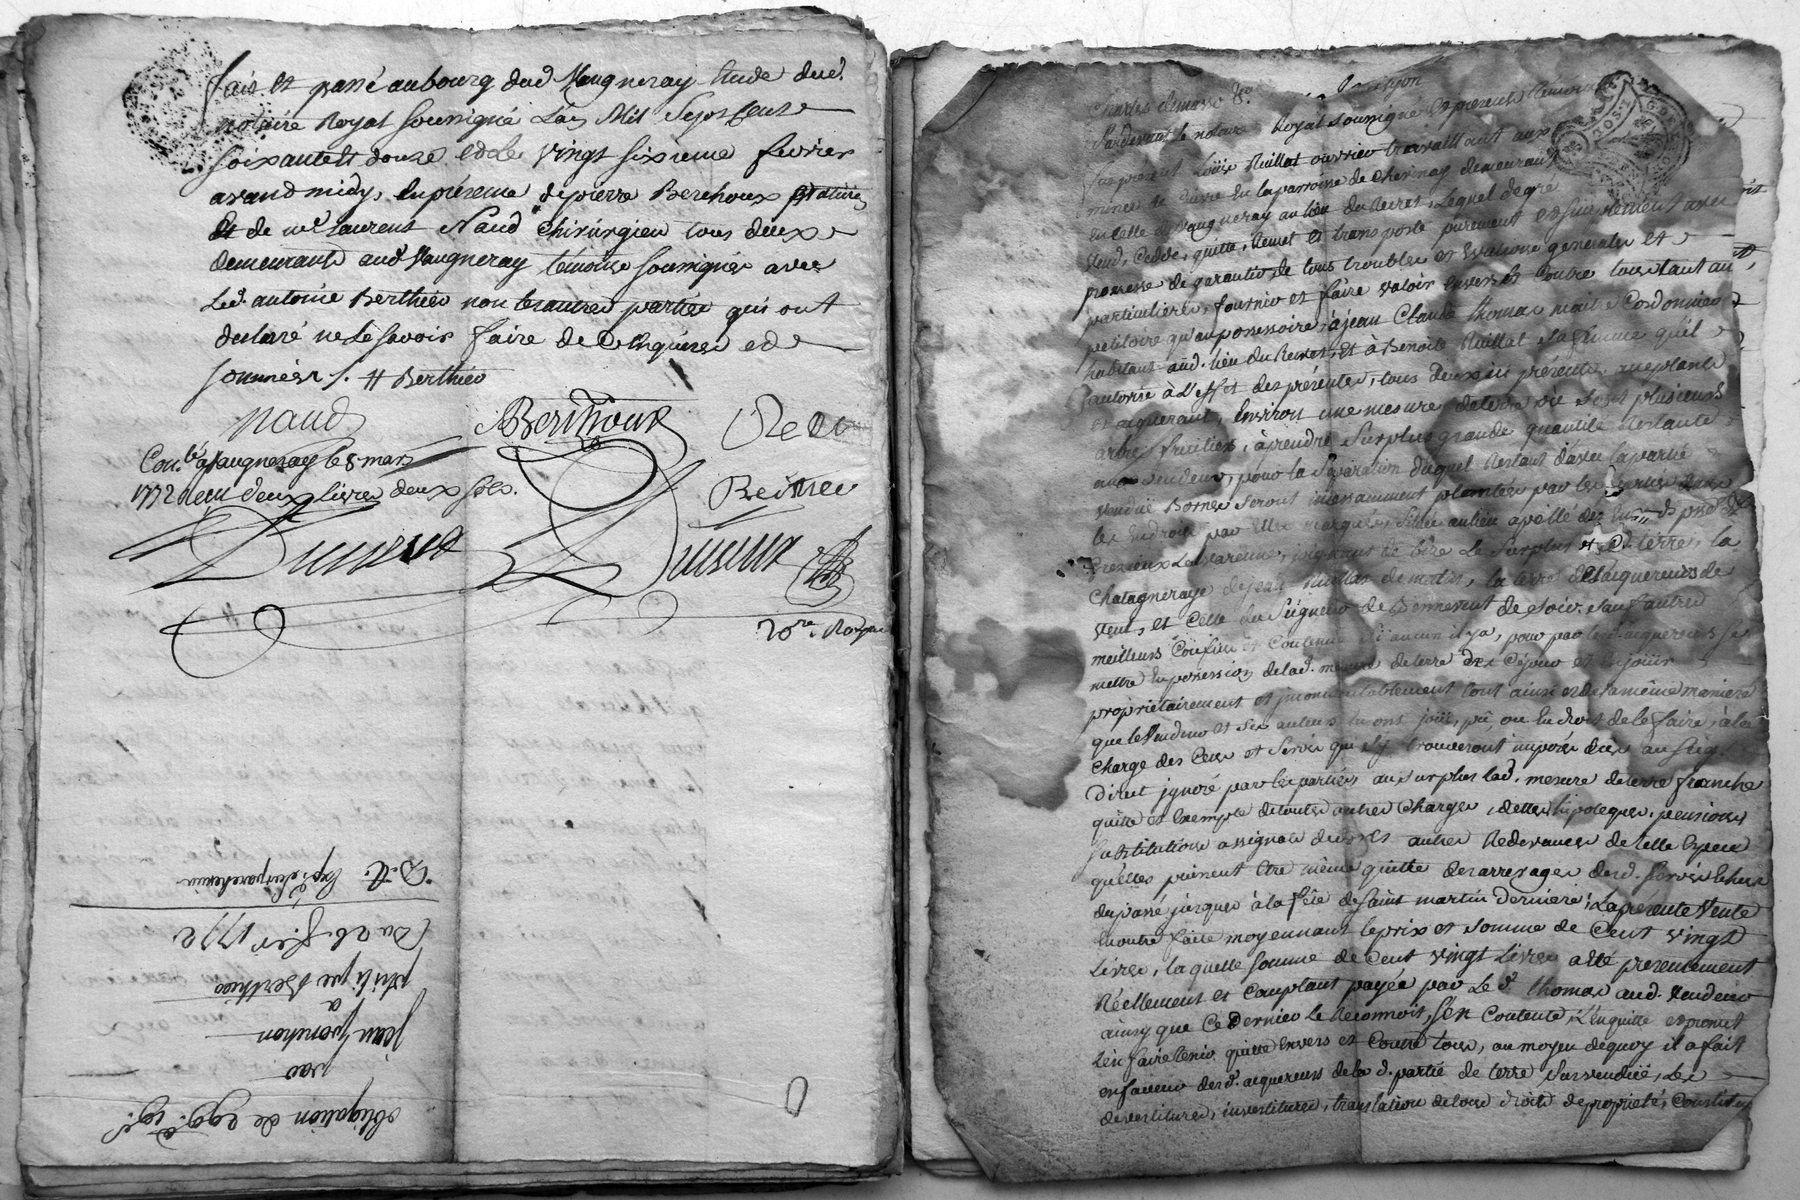 fait et passé au bourg dud. Vaugneray Etude dud.
notaire Royal soussigné L'an Mil Sept Cent
soixante et douze et le vingt sixieme fevrier
avant midy, en présence de pierre Berthoux
et de mr. laurent Naud chirurgien tous deux
demeurants aud. Vaugneray témoins soussignés avec
Led. antoine Berthieu non les autres parties qui ont
declaré ne le savoir faire de ce enquises et
sommées ./. Berthieu
Naud Berthoux
Con.lé a Vaugneray le 8 mars
1772 recu deux livres deux sols.
Dumeux Dumeux
Nore. Royal
obligation de 299.
par
jean
a
philipe Berthieu
Du 26 fer 1772
Exp. sur parchemin
Pardevant le notaire Royal soussigné et présents
fut present Loüis Ruillat ouvrier travaillant aux
mines de Cuivre en la parroisse de Chevinay demeurant
en celle de Vaugneray au lieu du Recret, Lequel de gré
vend, Cedde, quitte, Remet et transporte purement et simplement avec
promesse de garantir de tous troubles et evictions generales et
particulieres, fournir et faire valoir envers et Contre tous tant au
petitoire qu'au possessoire, à jean Claude thomas maitre Cordonnier
habitant aud. lieu du Recret, Et à Benoite Ruillat sa femme qu'il
autorise à L'effet des présentes, tous deux icy présents, acceptants
et acquerant, Environ une mesure de terre où sont plusieurs
arbres fruitiers, à prendre sur plus grande quantité Restante
aud. vendeur, pour la Séparation duquel Restant d'avec la partie
vendüe Bornes seront incessamment plantées par les
les Endroits par Elles marqués, située au lieu apellé des
La varenne, joignant de bize Le Surplus de terre, la
Chatagneraye de jean Ruillat de matin, la terre des acquereurs de
vent, et Celle du Seigneur de Bennevent de soir, sauf autres
meilleurs Confins et Contenue si aucun il y a, pour par lesd. acquereurs se
mettre En possession de lad. mesure de terre dès Cejour et En joüir
propriétairement et incommutablement tout ainsi et de la même maniere
que le Vendeur et ses auteurs en ont joüi, pû, ou En droit de le faire, à la
Charge des Cens et Servis qui s'y trouveront imposés dûs au Seigr.
Direct ignoré par les parties, au surplus lad. mesure de terre franche
quitte et Exempte de toutes autres Charges, dettes hipoteques, pensions
substitutions assignats de dots autres Redevances de telle Espece
qu'elles puissent être même quitte des arrerages desd. servis Echus
du passé jusques à la fête de saint martin derniere; La présente Vente
En outre faite moyennant le prix et somme de Cent vingt
Livres, laquelle somme de Cent vingt Livres a été presentement
Réellement et Comptant payée par Le d. thomas aud. Vendeur
ainsy que Ce dernier le Reconnoit, s'en Contente, L'en quitte et promet
L'en faire tenir quitte envers et Contre tous, au moyen dequoy il a fait
en faveur desd. acquereurs de la d. partie de terre Susvendüe, Les
devestitures, investitures, translation de tous droits de propriété,